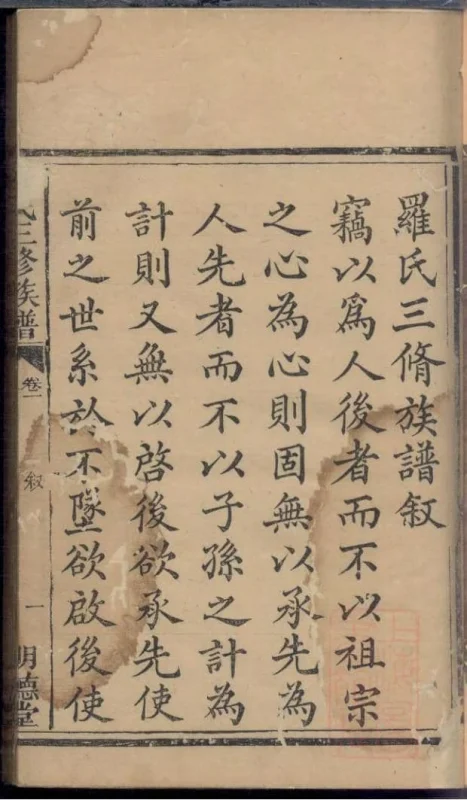 羅氏三脩族譜叙
竊以爲人後者而不以祖宗
之心為心則固無以承先為
人先者而不以子孫之計為
計則又無以啓後欲承先使
前之世系於不墜欲啟後使
氏三修族譜
卷一
叙
一
明德堂